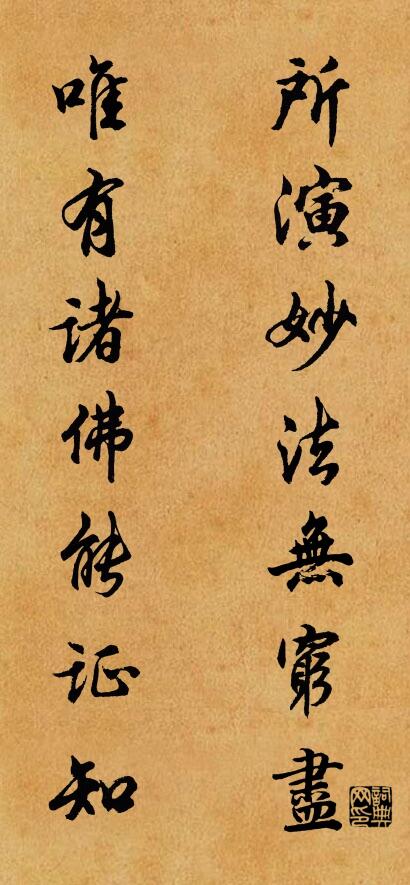 所演妙法無窮盡
唯有諸佛能証知
詞典网印